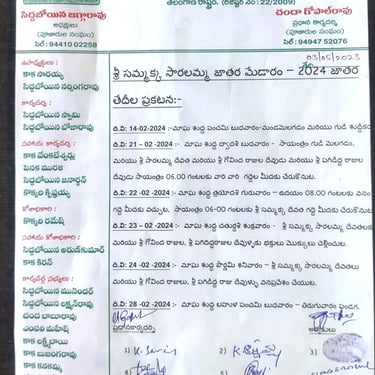 తెలంగాణ రాష్ట్రం. (రిజిస్టర్ నెం : 22/2009)
సిద్దబోయిన జగ్గారావు
అధ్యక్షులు
(పూజారుల సంఘం)
సెల్ : 94410 02258
చందా గోపాల్‌రావు
ప్రధాన కార్యదర్శి
(పూజారుల సంఘం)
సెల్ : 94947 52076
03/05/2023
శ్రీ సమ్మక్క సారలమ్మ జాతర మేడారం – 2024 జాతర
తేదీల ప్రకటన:-
ఉపాధ్యక్షులు :
కాక సారయ్య
సిద్దబోయిన నర్సింగరావు
కార్యదర్శి :
సిద్దబోయిన స్వామి
సిద్దబోయిన బోజారావు
సహాయ కార్యదర్శి :
కాక వెంకటేశ్వర్లు
పెనక మురళి
సిద్దబోయిన జనార్దన్
కొక్కెర క్రిష్ణయ్య
కోశాధికారి :
కొక్కెర రమేష్
సహాయ కోశాధికారి :
సిద్దబోయిన అరుణ్‌కుమార్
కాక కిరన్
కార్యవర్గ సభ్యులు :
సిద్దబోయిన మునేందర్
సిద్దబోయిన లక్ష్మన్‌రావు
చందా బాబూరావు
ఎంపెల్లి మహేష్
కాక లక్ష్మిబాయి
కాక బుజంగరావు
కాక కనకమ్మ
ది.వి 14-02-2024 :- మాఘ శుద్ధ పంచమి బుధవారం-మండమెలగడం మరియు గుడి శుద్దీకరణ
ది.వి – 21 – 02 -2024 :- మాఘ శుద్ధ ద్వాదశి బుధవారం- సాయంత్రం గుడి మెలగడం,
మరియు శ్రీ సారలమ్మ దేవత మరియు శ్రీ గోవింద రాజుల దేవుడు మరియు శ్రీ పగిడిద్ద రాజుల
దేవుడు సాయంత్రం 06.00 గంటలకు వారి వారి గద్దెల మీదకు చేరుకొనుట.
ది.వి – 22 -02 -2024 :- మాఘ శుద్ధ త్రయోదశి గురువారం – ఉదయం 08.00 గంటలకు వనం
గద్దె మీదకు వచ్చుట, సాయంత్రం 06-00 గంటలకు శ్రీ సమ్మక్క దేవత గద్దె మీదకు చేరుకొనుట.
ది.వి – 23 – 02 -2024 :- మాఘ శుద్ధ చతుర్దశి శుక్రవారం - శ్రీ సమ్మక్క సారలమ్మ దేవతలకు
మరియు శ్రీ గోవింద రాజుల, శ్రీ పగిడిద్దరాజుల దేవుళ్ళకు భక్తులు మొక్కులు చెల్లించుట.
ది.వి – 24 -02 -2024 :- మాఘ శుద్ధ పౌర్ణమి శనివారం – శ్రీ సమ్మక్క సారలమ్మ దేవతలు
మరియు శ్రీ గోవింద రాజుల, శ్రీ పగిడిద్ద రాజుల దేవుళ్ళు వనప్రవేశం చేయుట.
ది.వి – 28 -02 -2024 :- మాఘ శుద్ధ బహుళ పంచమి బుధవారం – తిరుగువారం పండుగ.
ప్రధానకార్యదర్శి
అధ్యక్షులు
1)
2)
3)
4)
5)